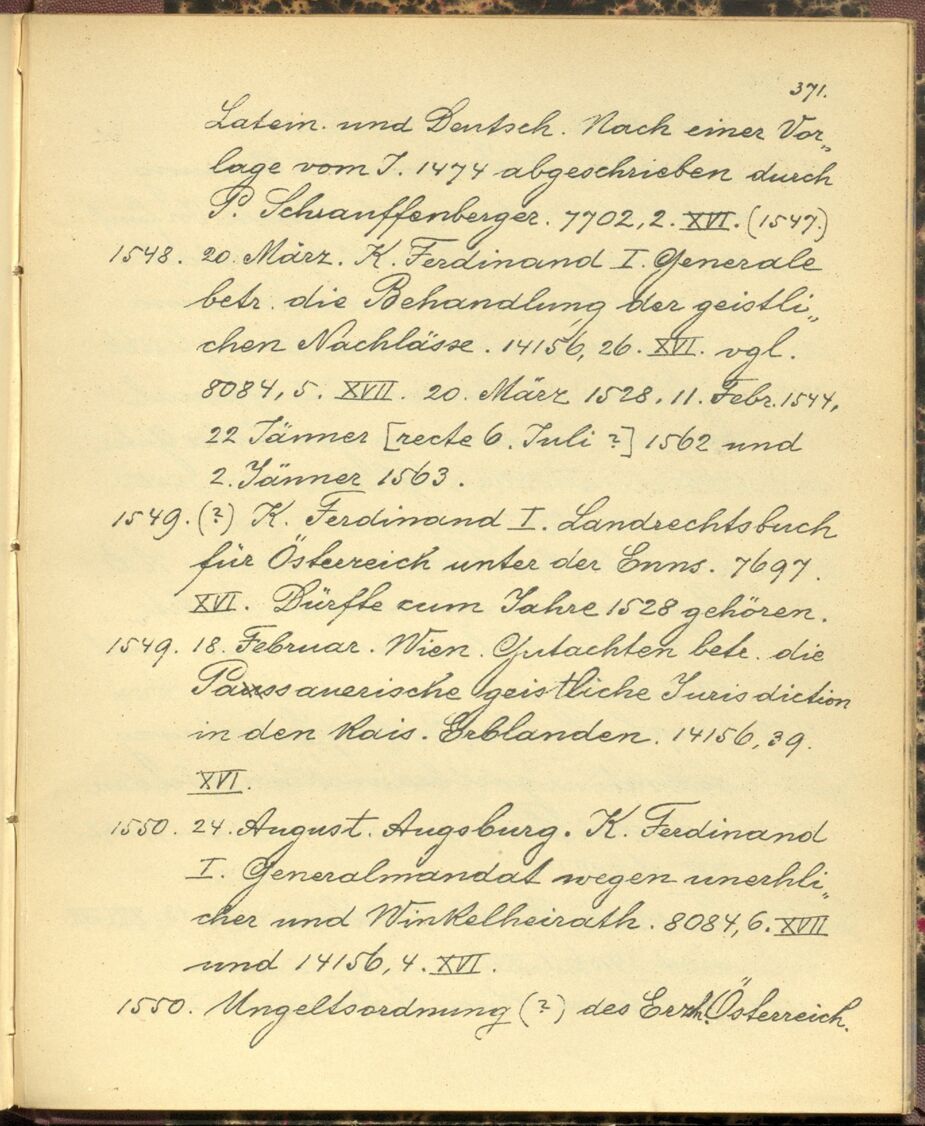 371.
Latein. und Deutsch. Nach einer Vor„
lage vom J. 1474 abgeschrieben durch
P. Schrauffenberger. 7702, 2. XVI. (1547.)
1548. 20. März. K. Ferdinand I. Generale
betr. die Behandlung der geistli„
chen Nachlässe. 14156, 26. XVI. vgl.
8084, 5. XVII. 20. März 1528. 11. Febr. 1544,
22 Jänner [recte 6. Juli ?] 1562 und
2. Jänner 1563.
1549. (?) K. Ferdinand I. Landrechtsbuch
für Österreich unter der Enns. 7697.
XVI. Dürfte zum Jahre 1528 gehören.
1549. 18. Februar. Wien. Gutachten betr. die
Passauerische geistliche Jurisdiction
in den kais. Erblanden. 14156, 39.
XVI.
1550. 24. August. Augsburg. K. Ferdinand
I. Generalmandat wegen unerhli„
cher und Winkelheirath. 8084, 6. XVII
und 14156, 4. XVI.
1550. Ungeltsordnung (?) des Erzh. Österreich.